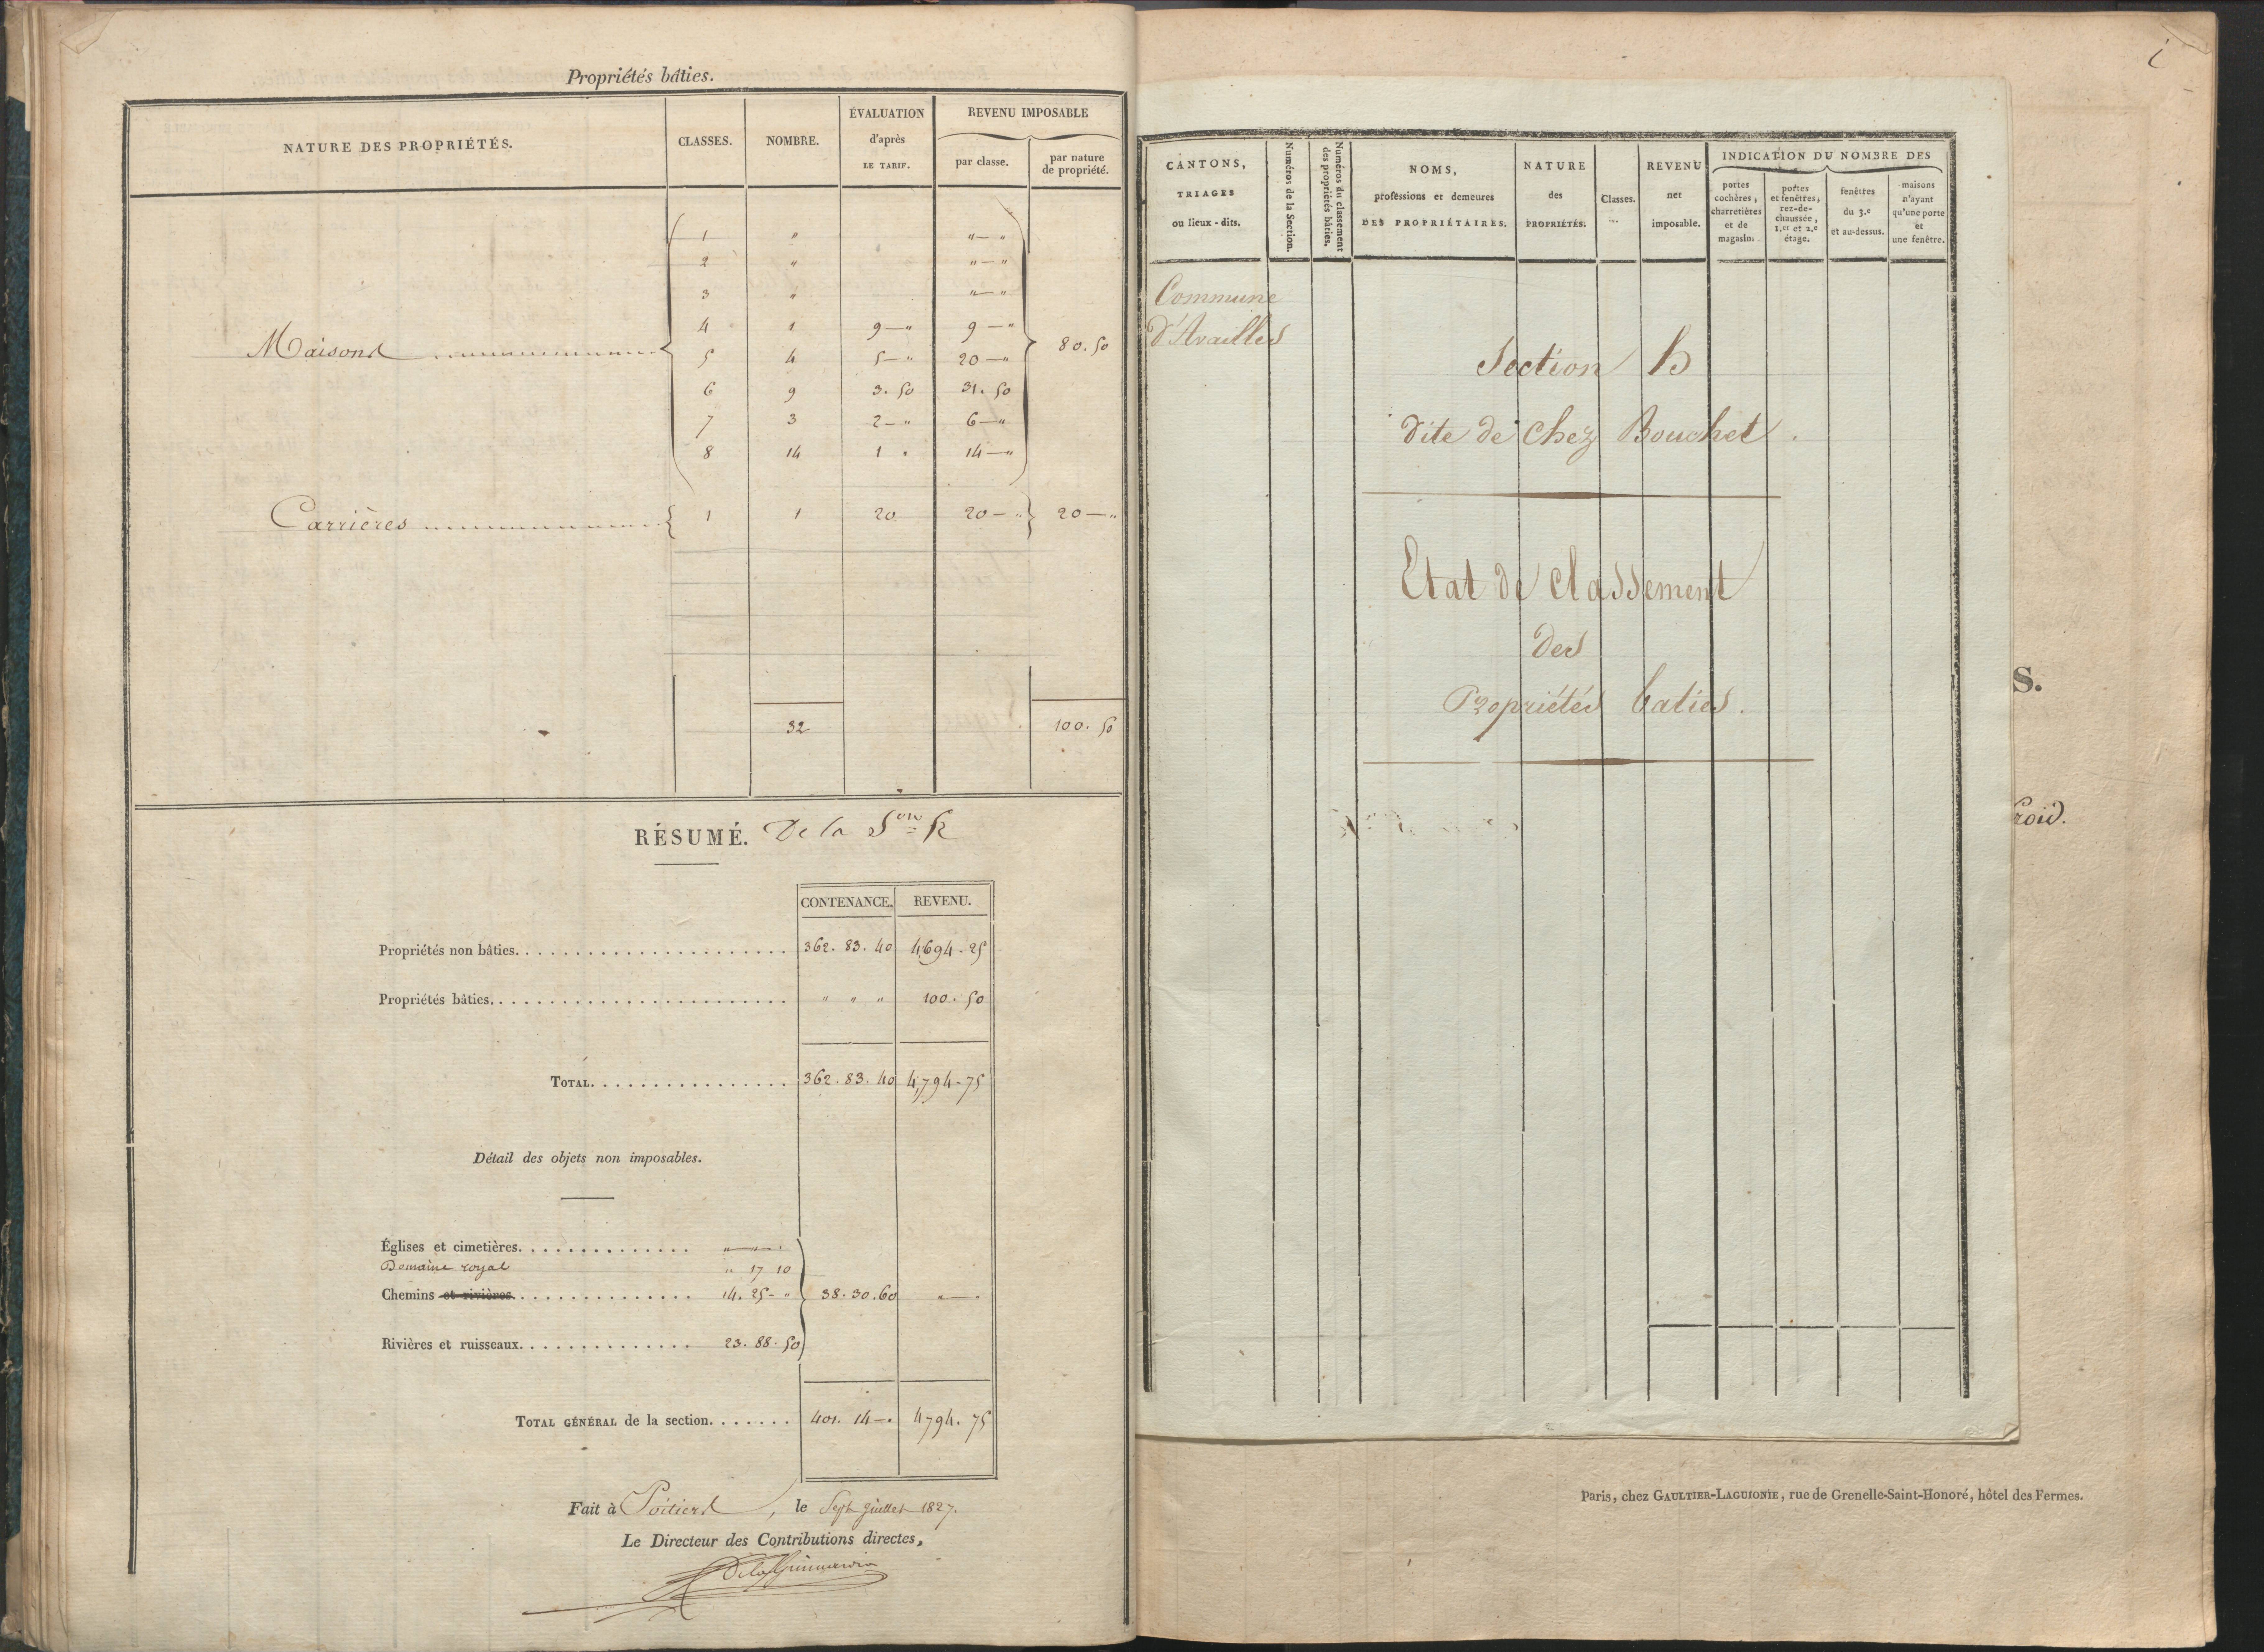 Propriétés bâties.
NATURE DES PROPRIÉTÉS. CLASSES. NOMBRE. ÉVALUATION d'après LE TARIF. REVENU IMPOSABLE par classe. par nature de propriété.
1 " "—"
2 " "—"
3 " "—"
4 1 9—" 9—"
Maisons 5 4 5—" 20—" 80.50
6 9 3.50 31.50
7 3 2—" 6—"
8 14 1 . 14—"
Carrières 1 1 20 20—" 20—"
32 100.50
RÉSUMÉ. De la S.on
CONTENANCE. REVENU.
Propriétés non bâties. 362.83.40 4,694-25
Propriétés bâties. " " " 100.50
TOTAL. 362.83.40 4,794-75
Détail des objets non imposables.
Églises et cimetières. "—"—"
Domaine royal " 17 10
Chemins et rivières. 14.25-" 38.30.60 "—"
Rivières et ruisseaux. 23.88.50
TOTAL GÉNÉRAL de la section. 401.14—" 4794.75
Fait à Poitiers, le Sept juillet 1827.
Le Directeur des Contributions directes,
i
CANTONS, TRIAGES ou lieux-dits.
Numéros de la Section.
Numéros du classement des propriétés bâties.
NOMS, professions et demeures DES PROPRIÉTAIRES.
NATURE des PROPRIÉTÉS.
Classes.
REVENU net imposable.
INDICATION DU NOMBRE DES
portes cochères, charretières et de magasin.
portes et fenêtres, rez-de-chaussée, 1.er et 2.e étage.
fenêtres du 3.e et au-dessus.
maisons n'ayant qu'une porte et une fenêtre.
Commune
d'Availles
Section B
dite de chez Bouchet.
Etat de classement
des
Propriétés baties.
S.
roid.
Paris, chez GAULTIER-LAGUIONIE, rue de Grenelle-Saint-Honoré, hôtel des Fermes.